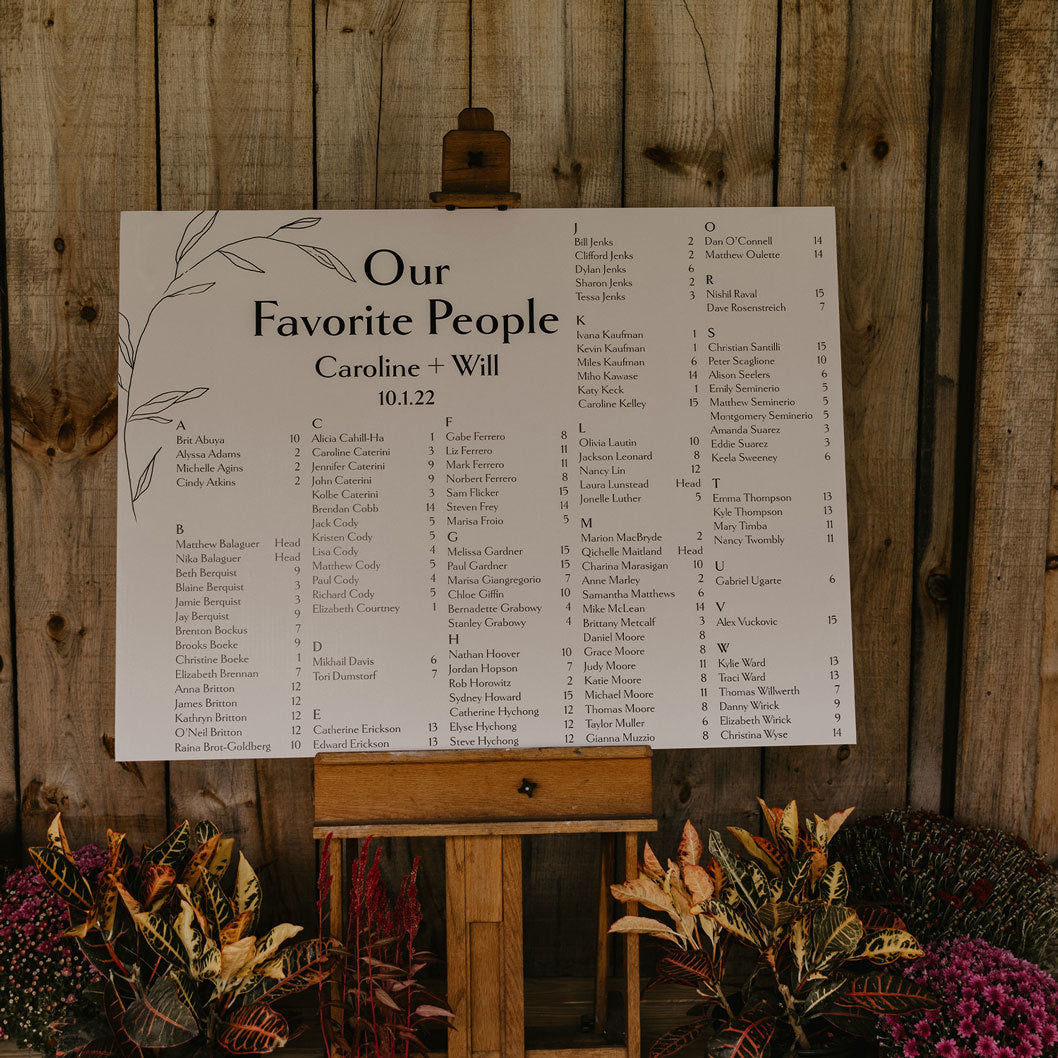 Our
Favorite People
Caroline + Will
10.1.22
A
Brit Abuya 10
Alyssa Adams 2
Michelle Agins 2
Cindy Atkins 2
B
Matthew Balaguer Head
Nika Balaguer Head
Beth Berquist 9
Blaine Berquist 3
Jamie Berquist 3
Jay Berquist 9
Brenton Bockus 7
Brooks Boeke 9
Christine Boeke 1
Elizabeth Brennan 7
Anna Britton 12
James Britton 12
Kathryn Britton 12
O'Neil Britton 12
Raina Brot-Goldberg 10
C
Alicia Cahill-Ha 1
Caroline Caterini 3
Jennifer Caterini 9
John Caterini 9
Kolbe Caterini 3
Brendan Cobb 14
Jack Cody 5
Kristen Cody 5
Lisa Cody 4
Matthew Cody 5
Paul Cody 4
Richard Cody 5
Elizabeth Courtney 1
D
Mikhail Davis 6
Tori Dumstorf 7
E
Catherine Erickson 13
Edward Erickson 13
F
Gabe Ferrero 8
Liz Ferrero 11
Mark Ferrero 11
Norbert Ferrero 8
Sam Flicker 15
Steven Frey 14
Marisa Froio 5
G
Melissa Gardner 15
Paul Gardner 15
Marisa Giangregorio 7
Chloe Giffin 10
Bernadette Grabowy 4
Stanley Grabowy 4
H
Nathan Hoover 10
Jordan Hopson 7
Rob Horowitz 2
Sydney Howard 15
Catherine Hychong 12
Elyse Hychong 12
Steve Hychong 12
J
Bill Jenks 2
Clifford Jenks 2
Dylan Jenks 6
Sharon Jenks 2
Tessa Jenks 3
K
Ivana Kaufman 1
Kevin Kaufman 1
Miles Kaufman 6
Miho Kawase 14
Katy Keck 1
Caroline Kelley 15
L
Olivia Lautin 10
Jackson Leonard 8
Nancy Lin 12
Laura Lunstead Head
Jonelle Luther 5
M
Marion MacBryde 2
Qichelle Maitland Head
Charina Marasigan 10
Anne Marley 2
Samantha Matthews 6
Mike McLean 14
Brittany Metcalf 3
Daniel Moore 8
Grace Moore 8
Judy Moore 11
Katie Moore 8
Michael Moore 11
Thomas Moore 8
Taylor Muller 6
Gianna Muzzio 8
O
Dan O'Connell 14
Matthew Oulette 14
R
Nishil Raval 15
Dave Rosenstreich 7
S
Christian Santilli 15
Peter Scaglione 10
Alison Seelers 6
Emily Seminerio 5
Matthew Seminerio 5
Montgomery Seminerio 5
Amanda Suarez 3
Eddie Suarez 3
Keela Sweeney 6
T
Emma Thompson 13
Kyle Thompson 13
Mary Timba 11
Nancy Twombly 11
U
Gabriel Ugarte 6
V
Alex Vuckovic 15
W
Kylie Ward 13
Traci Ward 13
Thomas Willwerth 7
Danny Wirick 9
Elizabeth Wirick 9
Christina Wyse 14